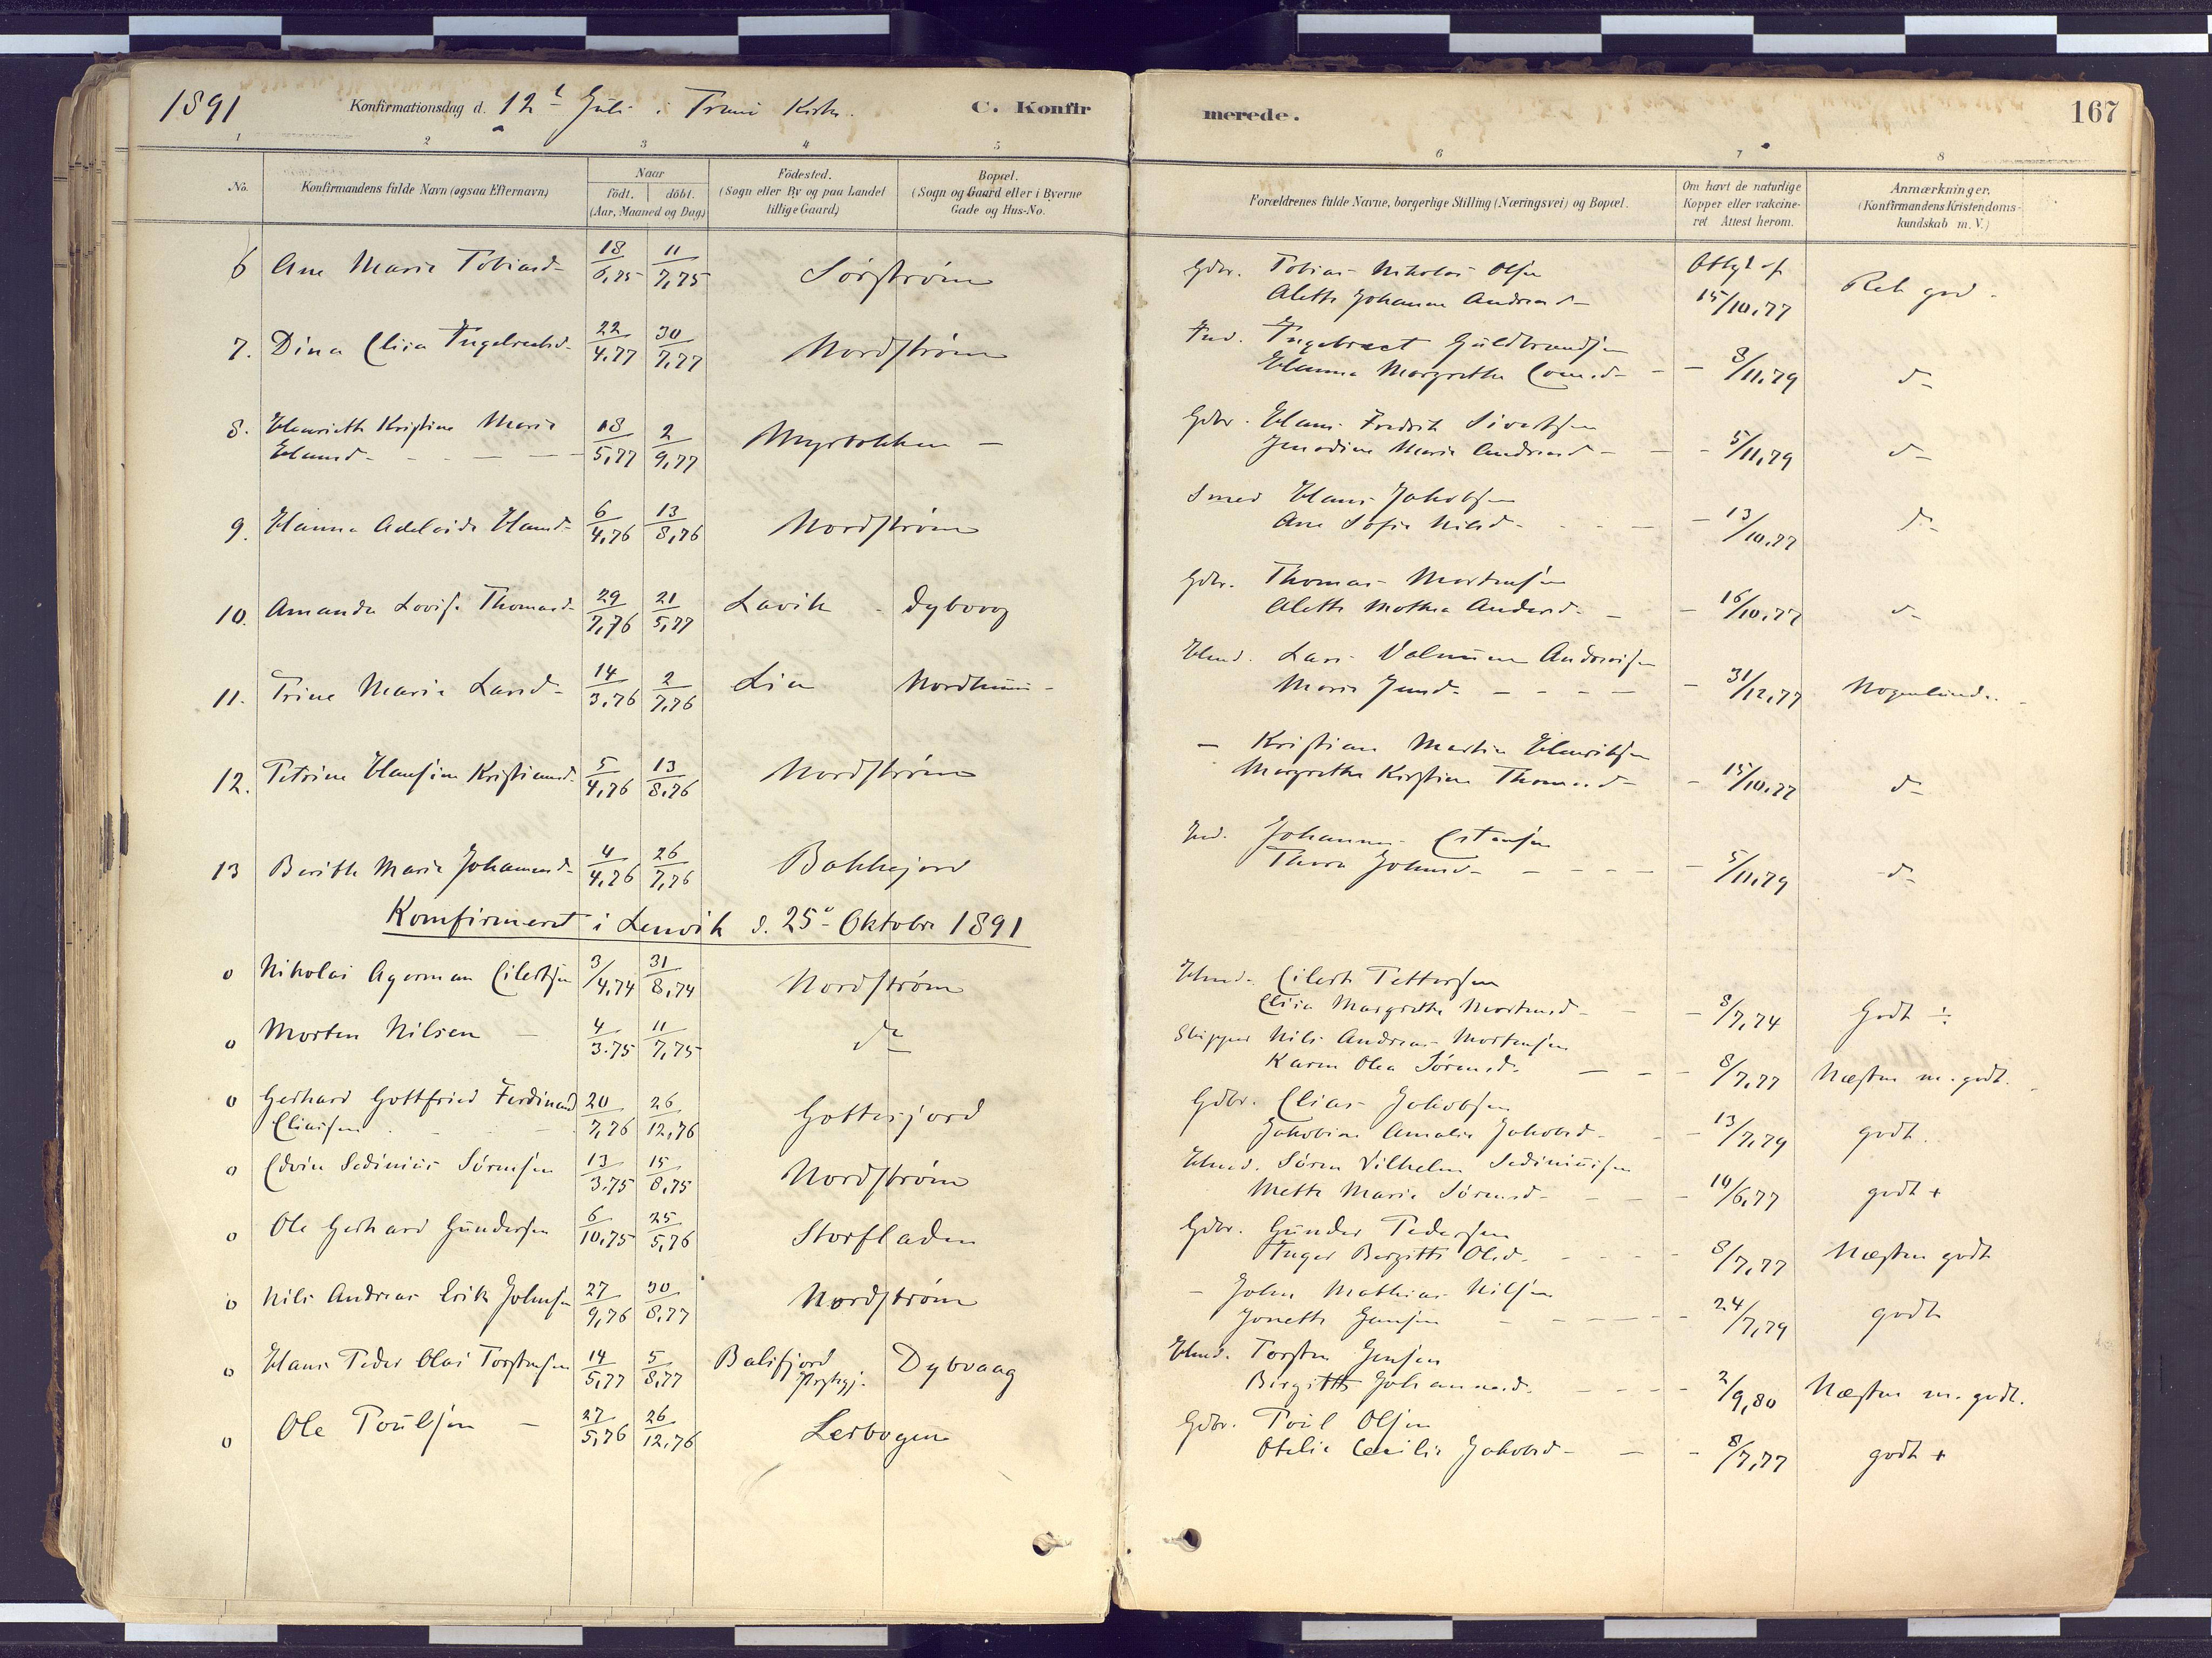 1891 Konfirmationsdag d. 12 Juli i Kirke. C. Konfirmerede. 167
1 2 3 4 5 6 7 8
No.
Konfirmandens fulde Navn (ogsaa Efternavn)
Naar
födt. döbt.
(Aar, Maaned og Dag)
Födested.
(Sogn eller By og paa Landet
lillige Gaard)
Bopæl.
(Sogn og Gaard eller i Byerne
Gade og Hus-No.
Forældrenes fulde Navne, borgerlige Stilling (Næringsvei) og Bopæl.
Om havt de naturlige
Kopper eller vakcine-
ret Attest herom.
Anmærkninger.
(Konfirmandens Kristendoms-
kundskab m. V.)
6 Ane Marie Tobiasd- 18/6,75 11/7,75 Sørstrøm Gdbr. Tobias Nikolai Olsen
Aleth Johanna Andreasd- 15/10,77 god
7. Dina Elisa Ingebrectsd- 22/4,77 30/7,77 Nordstrøm Ind. Ingebrect Guldbrandsen
Hanna Margrethe - - 3/11,79 d-
8. Henriette Kristine Marie
Hansd- 18/5,77 2/9,77 Myrbakken - Gdbr. Hans Fredrik Sivertsen
Jensdine Marie Andreasd- - - 5/11,79 d-
9. Hanna Adelaide Hansd- 6/4,76 13/8,76 Nordstrøm Smed Hans Jakobsen
Ane Sofie Nilsd- - 13/10,77 d-
10. Amanda Lovise Thomasd- 29/7,76 21/5,77 Lavik - Dybvog Gdbr. Thomas Mortensen
Aleth Mathea Andersd- - 16/10,77 d-
11. Trine Marie Larsd- 14/3,76 2/7,76 Lia Hmd. Lars Andersen
Marie Jensd- - 31/12,77 Nogenlund.
12. Petrine Hansine Kristiansd- 5/4,76 13/8,76 Nordstrøm - Kristian Martin Henriksen
Margrethe Kirstine Thomasd- - 15/10,77 d-
13 Berith Marie Johannesd- 4/4,76 26/7,76 Bakkejord Ind. Johannes Estensen
Thora Johnsd- - 5/11,79 d-
Komfirmeret i Lenvik d. 25- Oktober 1891
o Nikolai Agerman Eilertsen 3/4,74 31/8,74 Nordstrøm Hmd. Eilert Pettersen
Elisa Margrethe Mortensd- - 8/7,74 Godt ÷
o Morten Nilsen - 4/3.75 11/7,75 do Skipper Nils Andreas Mortensen
Karen Olea Sørensd. - 8/7,77 Næsten m. godt.
o Gerhard Gottfried Ferdinand
Eliassen 20/7,76 26/12,76 Gottesjord Gdbr. Elias Jakobsen
Jakobine Amalie Jakobsd- - 13/7,79 godt.
o Edvin Sediniüs Sørensen 13/3.75 15/8,75 Nordstrøm Hmd. Søren Vilhelm Sediniüsen
Mette Marie Sørensd- - 10/6,77 godt +
o Ole Gerhard Gundersen 6/10,75 25/5,76 Storfladen Gdbr. Gunder Pedersen
Inger Bergitte Olsd- - 8/7,77 Næsten godt
o Nils Andreas Erik Johnsen 27/9,76 30/8,77 Nordstrøm - John Mathias Nilsen
Jonette Jensen - 24/7,79 godt
o Hans Peder Olai Torstensen 14/5,77 5/8,77 Balsfjord
Prstgj. Dybvaag Hmd. Torsten Jensen
Birgitte Johannesd. - 2/9,80 Næsten m. godt.
o Ole Poulsen - 27/5,76 26/12,76 Lerbogen Gdbr. Poul Olsen
Otelie Cecilie Jakobsd- - 8/7,77 godt +